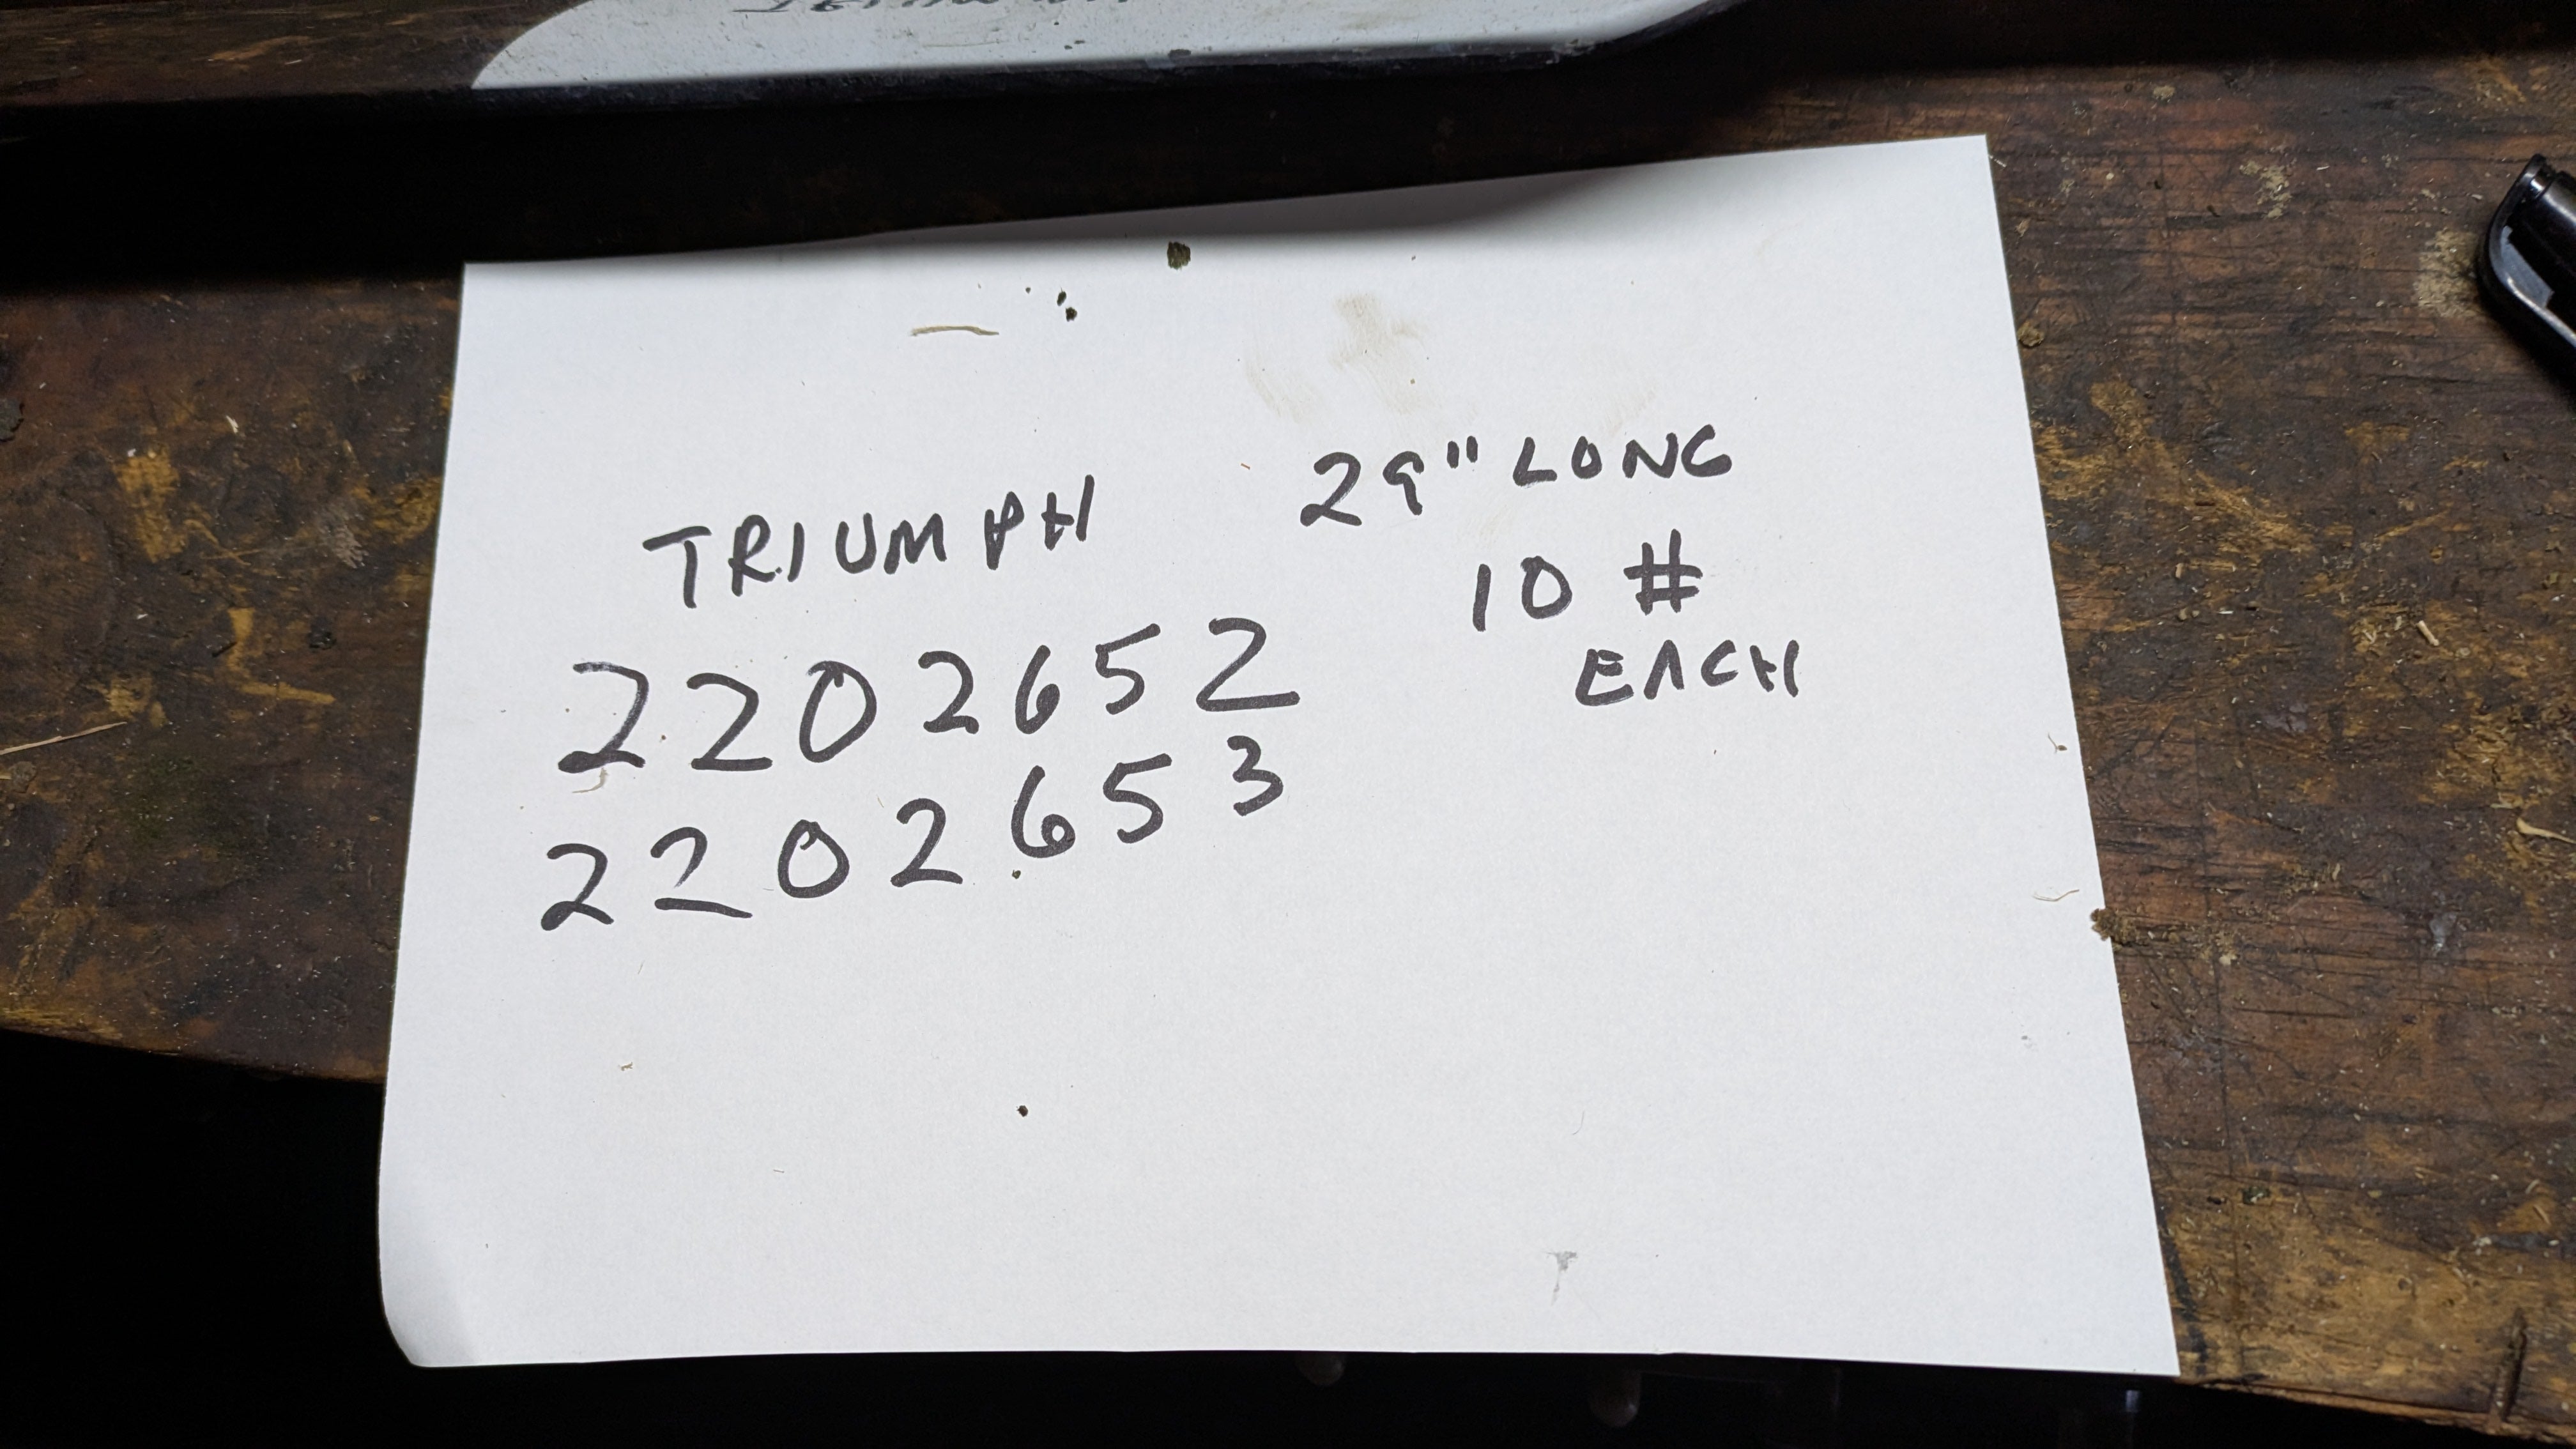 TRIUMPH
29" LONG
10 #
EACH
2202652
2202653